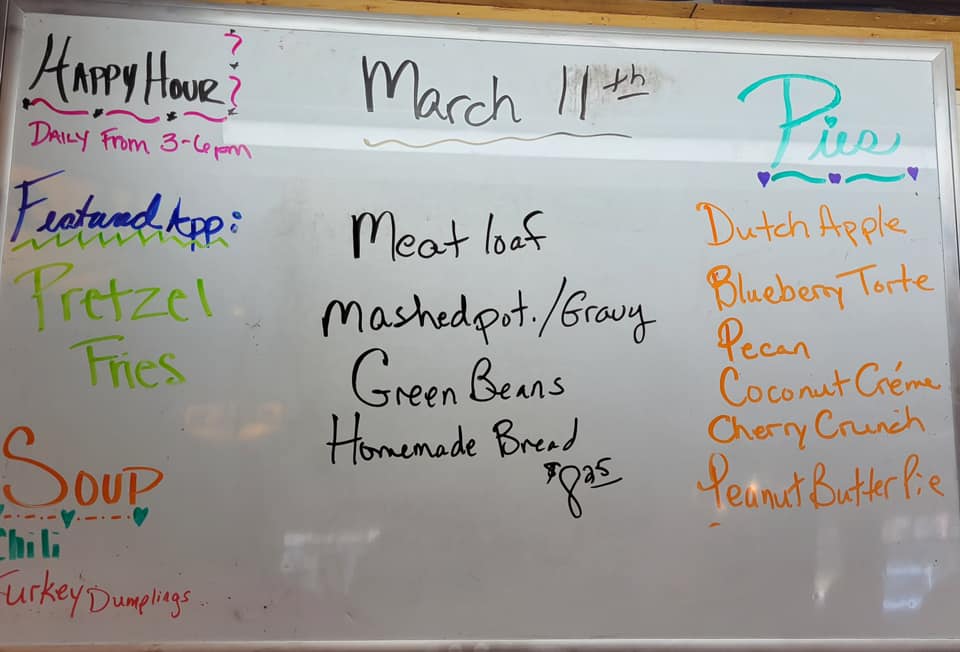 Happy Hour
Daily From 3-6pm
Featured App:
Pretzel
Fries
Soup
Chili
Turkey Dumplings
March 11th
Meat loaf
Mashed pot./Gravy
Green Beans
Homemade Bread
$8.25
Pies
Dutch Apple
Blueberry Torte
Pecan
Coconut Créme
Cherry Crunch
Peanut Butter Pie